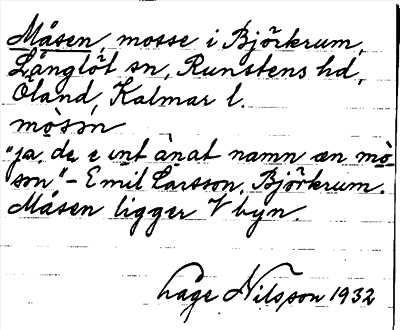 Måsen, mosse i Björkrum,
Långlöt sn, Runstens hd,
Öland, Kalmar l.
mòsɜn
"ja, de e int ànat namn æn mò-
sɜn" - Emil Larsson, Björkrum.
Måsen ligger V byn.
Åge Nilsson 1932